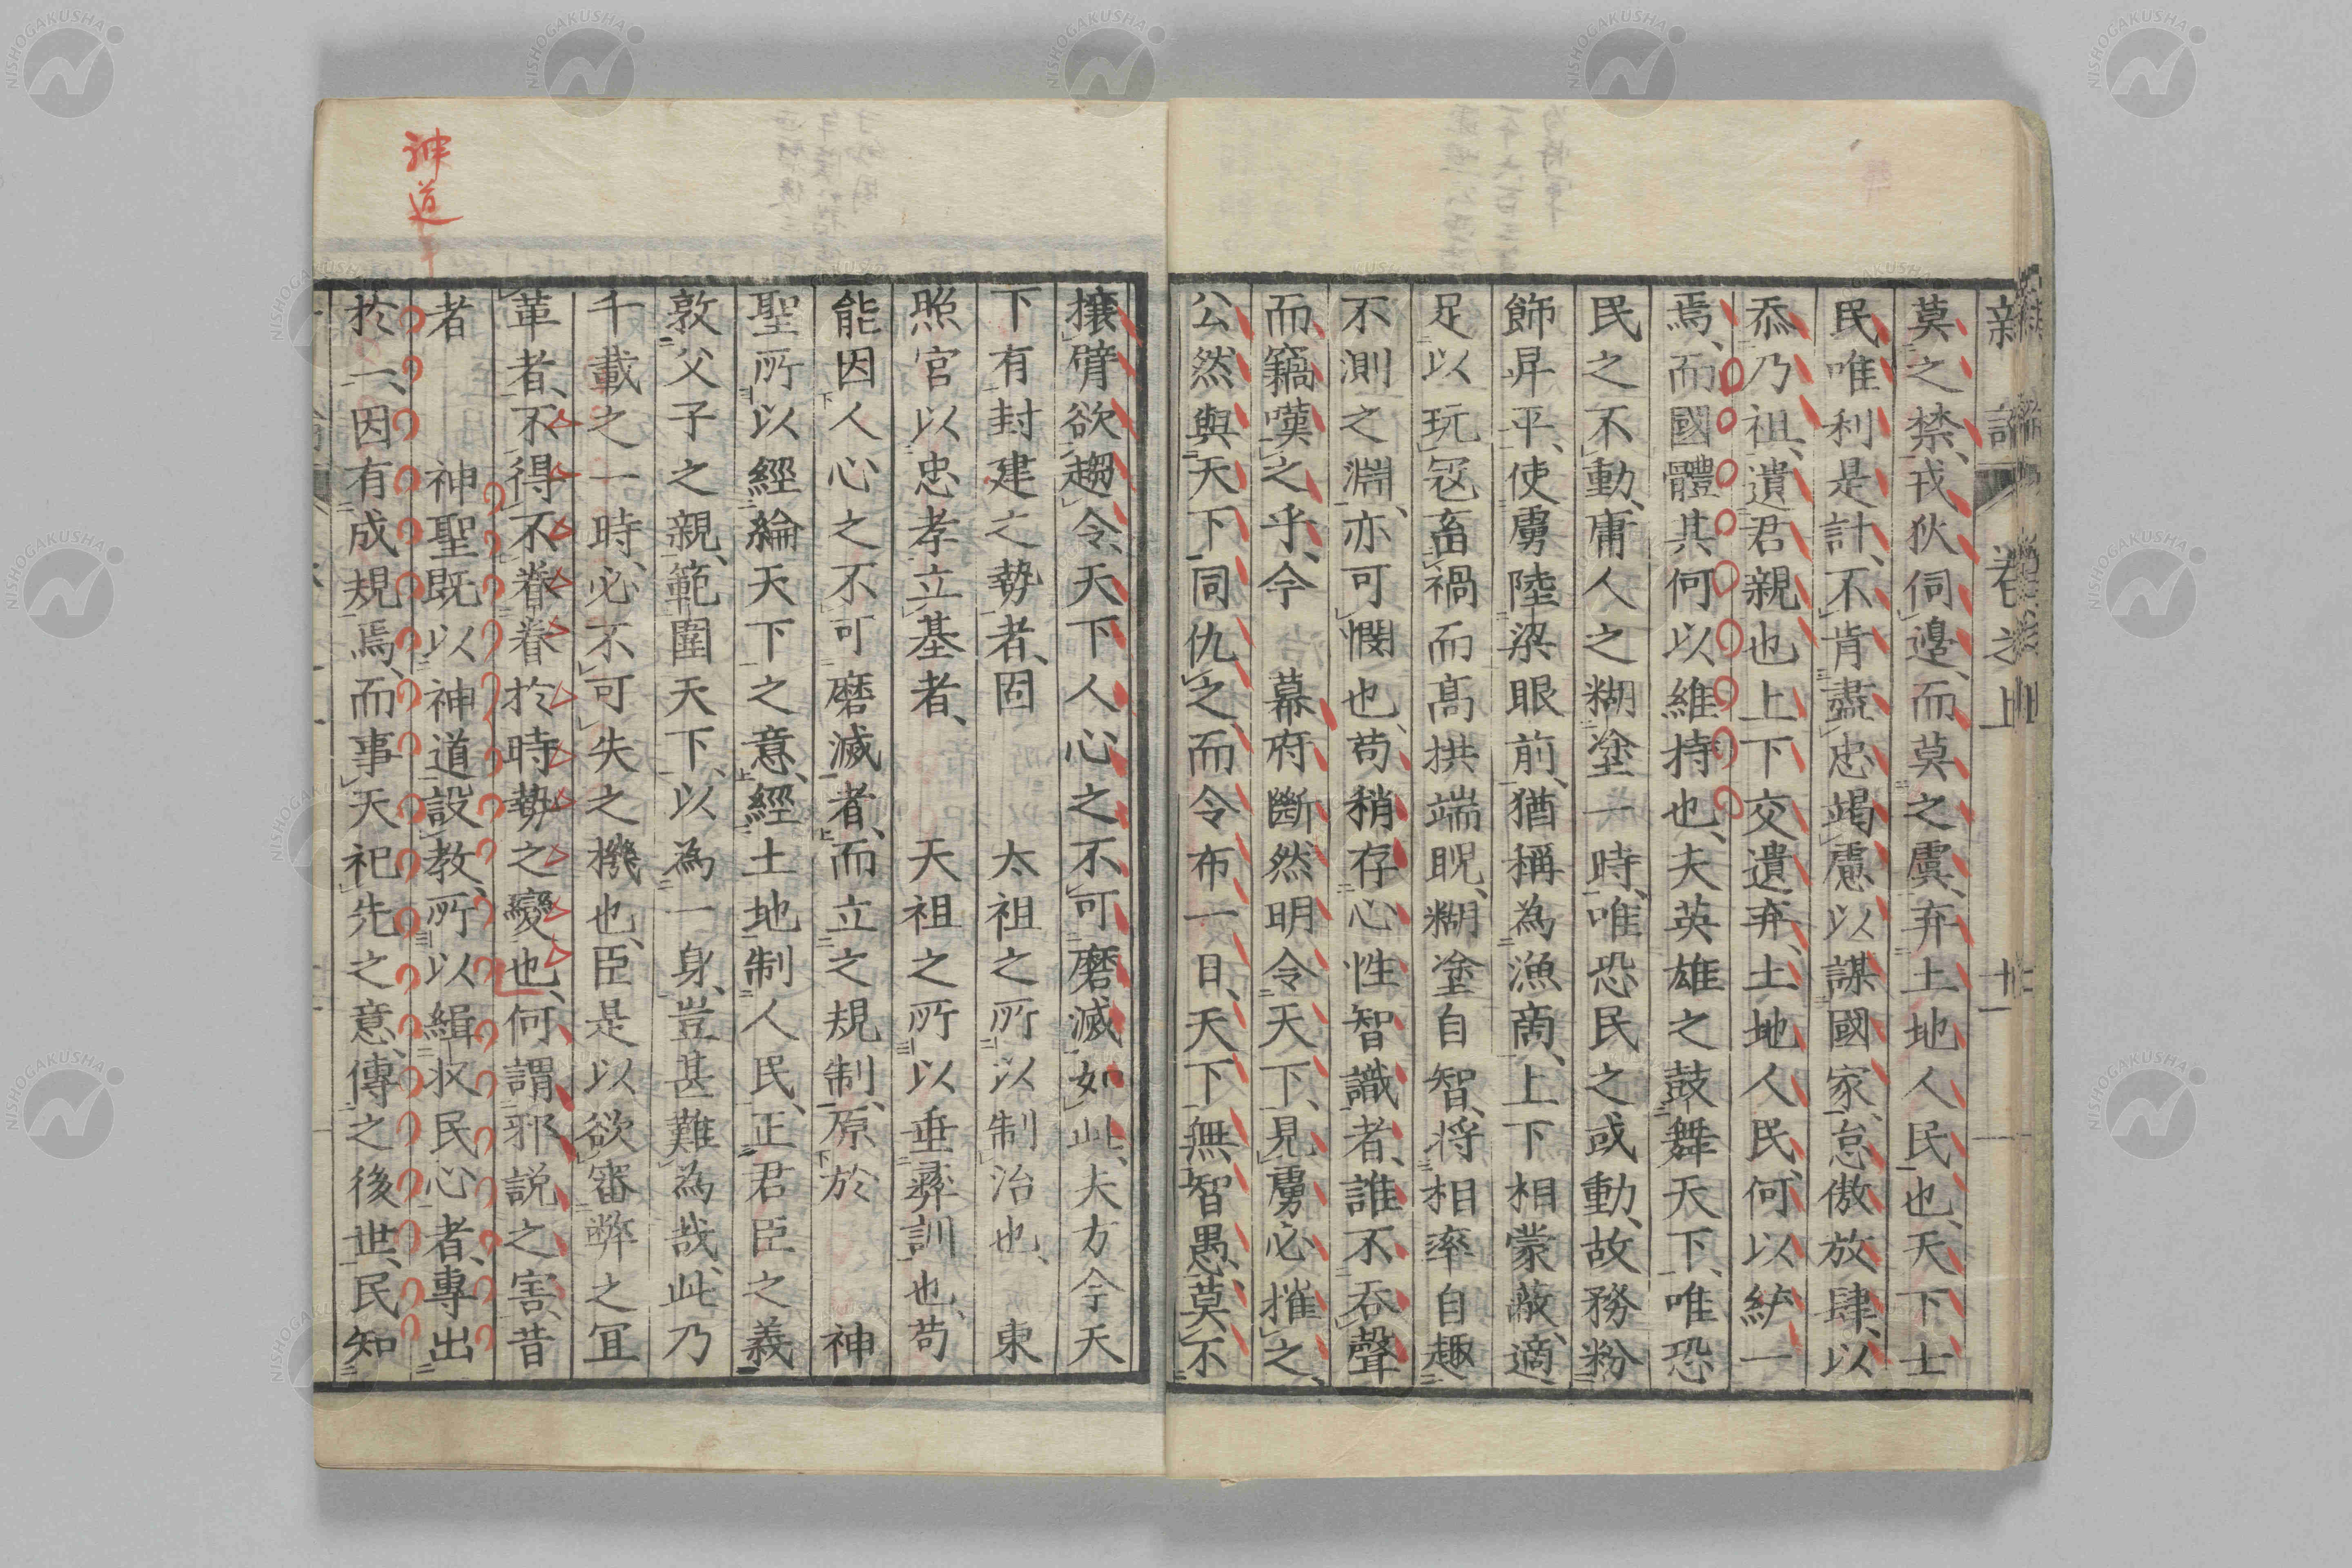 莫之禁、戎狄伺邊、而莫之虞、弃土地人民也、天下士
民唯利是計、不肯盡忠竭慮以謀國家、怠傲放肆、以
忝乃祖、遺君親也、上下交遺弃、土地人民、何以統一
焉、而國體其何以維持也、夫英雄之鼓舞天下、唯恐
民之不動、庸人之糊塗一時、唯恐民之或動、故務粉
飾昇平、使虜陸梁眼前、猶稱為漁商、上下相蒙蔽、適
足以玩冦畜禍而高拱端睨、糊塗自智、将相率自趣
不測之淵、亦可憫也、苟稍存心性智識者、誰不吞聲
而竊嘆之乎、今 幕府斷然明令天下、見虜必摧之、
公然與天下同仇之、而令布一日、天下無智愚、莫不
攘臂欲趨令、天下人心之不可磨滅如此、夫方今天
下有封建之勢者、固 太祖之所以制治也、東
照宮以忠孝立基者、 天祖之所以垂彝訓也、苟
能因人心之不可磨滅者、而立之規制、原於 神
聖所以經綸天下之意、經土地制人民、正君臣之義
敦父子之親、範圍天下、以為一身、豈甚難為哉、此乃
千載之一時、必不可失之機也、臣是以欲審弊之冝
革者、不得不眷眷於時勢之變也、何謂邪説之害、昔
者 神聖既以神道設教、所以緝収民心者、專出
於一、因有成規焉、而事天祀先之意、傳之後世、民知
神道
新論 卷之上
NISHOGAKUSHA